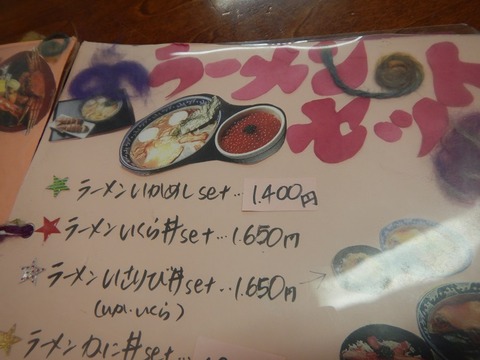 ラーメン
セット
ラーメンいかめしset‥1.400円
ラーメンいくら丼set…1.650円
ラーメンいさりび丼set‥1.650円
(いか・いくら)
ラーメンかに丼set‥